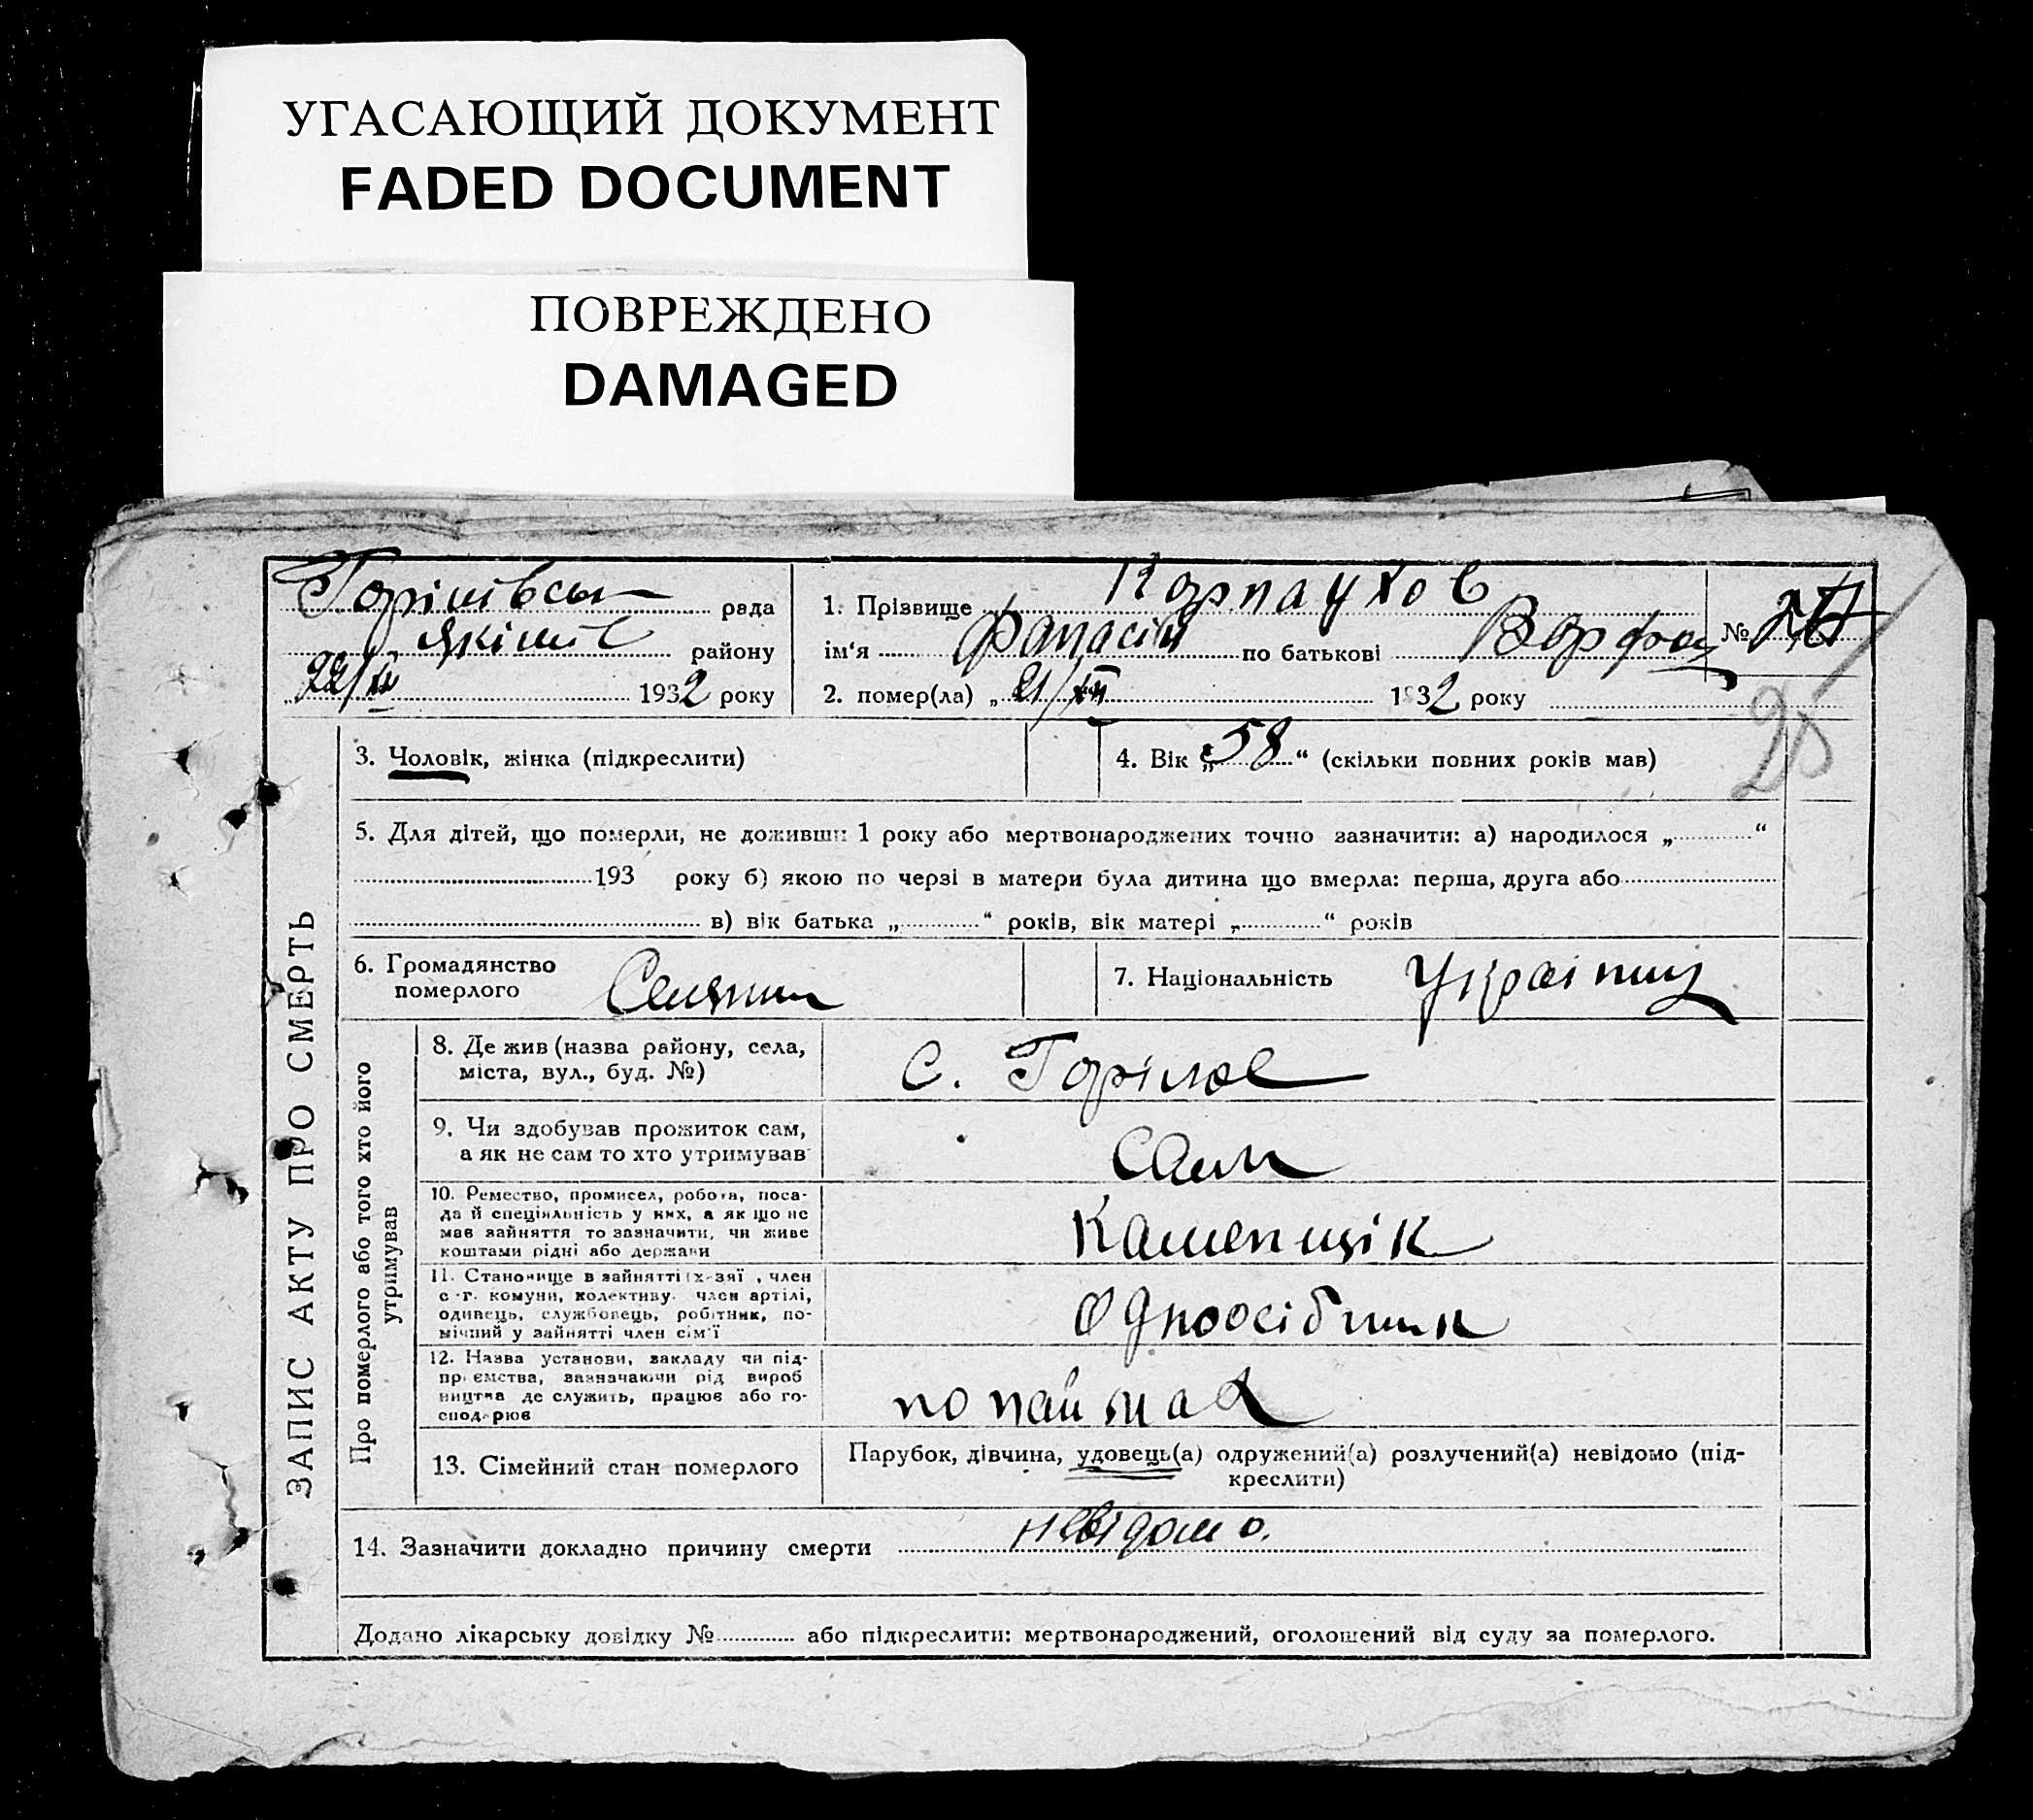 УГАСАЮЩИЙ ДОКУМЕНТ
FADED DOCUMENT
ПОВРЕЖДЕНО
DAMAGED
рада
району
1932 року
1. Прізвище Корпаухов
ім'я Фанасій по батькові
№
2. помер(ла) „ 21/XII 1932 року
28
ЗАПИС АКТУ ПРО СМЕРТЬ
3. Чоловік, жінка (підкреслити)
4. Вік „58“ (скільки повних років мав)
5. Для дітей, що померли, не доживши 1 року або мертвонароджених точно зазначити: а) народилося „ “
193 року б) якою по черзі в матери була дитина що вмерла: перша, друга або
в) вік батька „ “ років, вік матері „ “ років
6. Громадянство
померлого Селянин
7. Національність Українец
Про померлого або того хто його
утримував
8. Де жив (назва району, села,
міста, вул., буд. №)
с. Горілое
9. Чи здобував прожиток сам,
а як не сам то хто утримував
Сам
10. Ремество, промисел, робота, поса-
да й спеціяльність у них, а як що не
мав зайняття то зазначити, чи живе
коштами рідні або держави
Каменщік
11. Становище в зайнятті (х-зяї , член
с-г. комуни, колективу, член артілі,
одинець, службовець, робітник, по-
мічний у зайнятті член сім'ї
Одноосібник
12. Назва установи, закладу чи під-
приємства, зазначаючи рід вироб
ництва де служить, працює або го-
сподарює
по наймах
13. Сімейний стан померлого
Парубок, дівчина, удовець(а) одружений(а) розлучений(а) невідомо (під-
креслити)
14. Зазначити докладно причину смерти невідомо.
Додано лікарську довідку № або підкреслити: мертвонароджений, оголошений від суду за померлого.